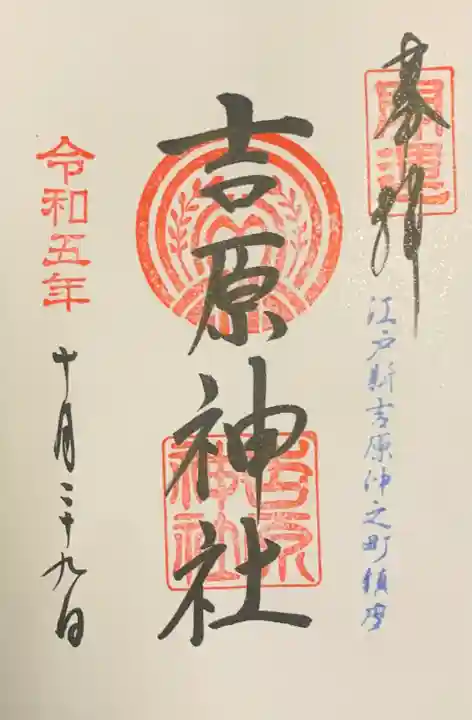 奉拝
開運
江戸新吉原仲之町鎮座
吉原神社
吉原神社
令和五年
十月二十九日